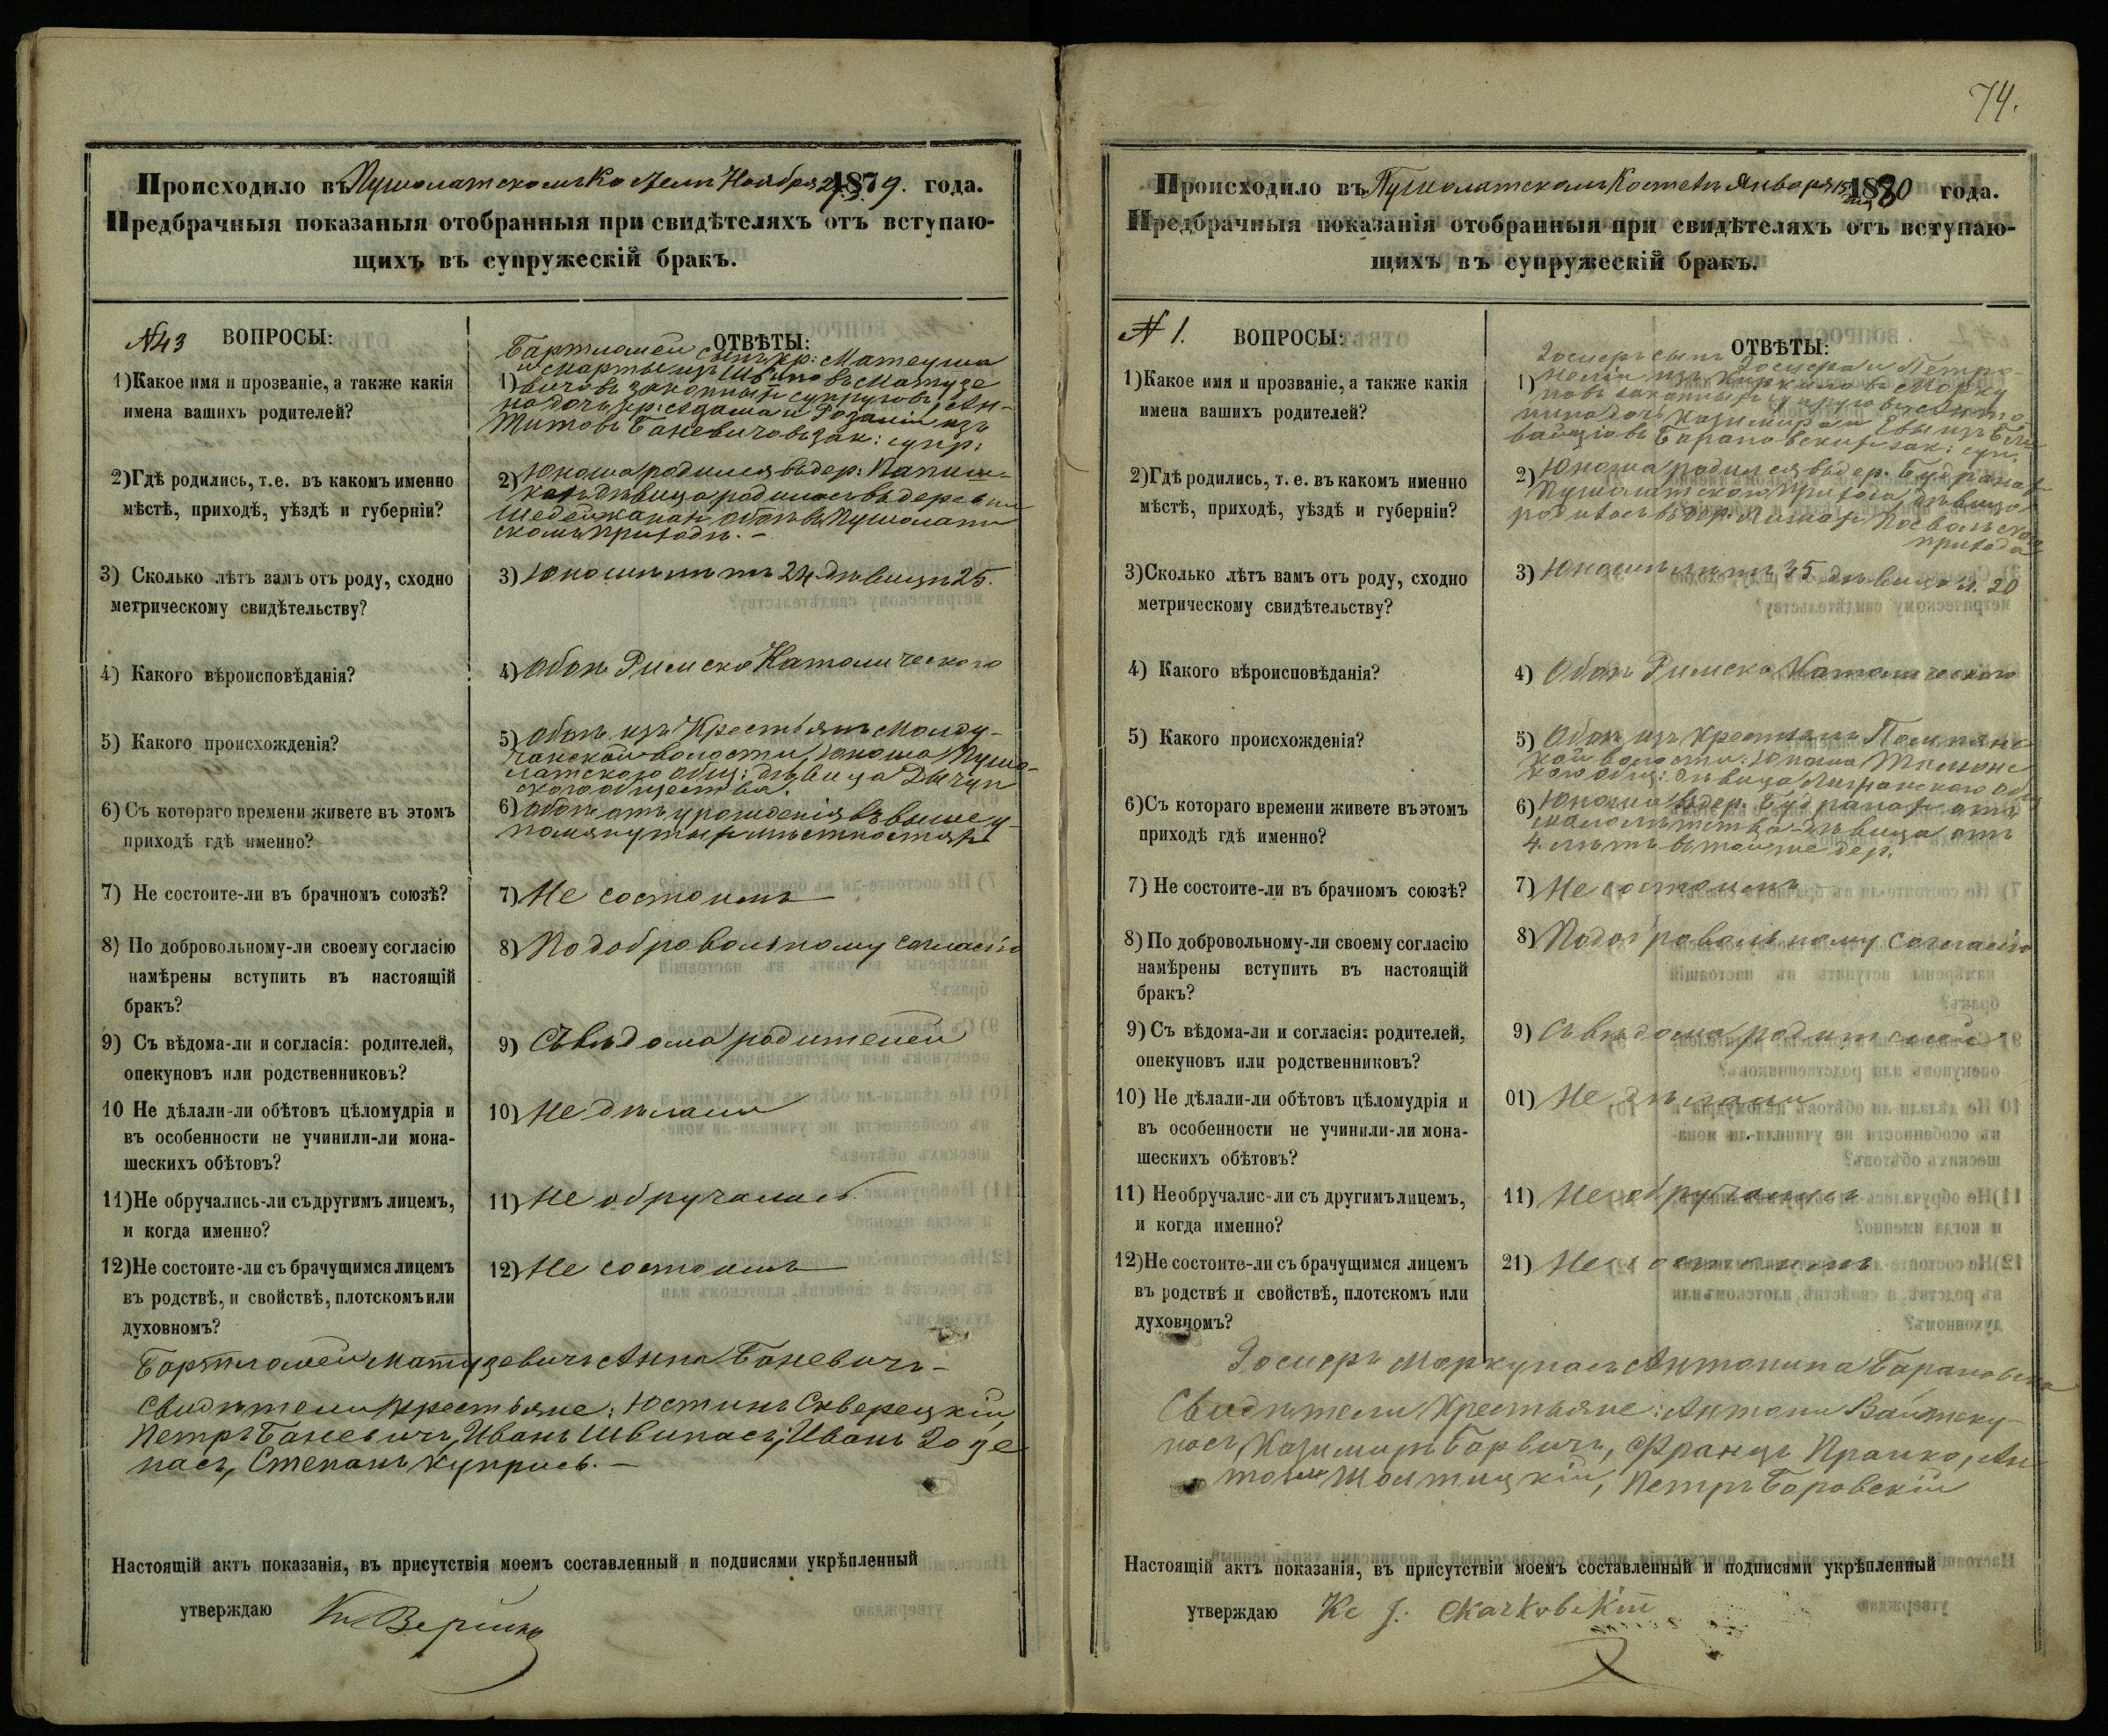 Происходило въ Пушолатскомъ Костелѣ Ноября 1879. года.
Предбрачныя показаныя отобранныя при свидѣтеляхъ отъ вступаю-
щихъ въ супружескій бракъ.
№43 ВОПРОСЫ:
ОТВѢТЫ:
1) Какое имя и прозваніе, а также какія
имена вашихъ родителей?
Бартломей сынъ кр: Матеуша
1) и Марты изъ Матузе
вичовъ законныхъ супруговъ, Ан-
на дочь кр: Адама и Розаліи изъ
Титовъ Баневичовъ зак: супр:
2) Гдѣ родились, т.е. въ какомъ именно
мѣстѣ, приходѣ, уѣздѣ и губерніи?
2) Юноша родился въ дер:
дѣвица родилась въ деревни
обоѣ въ Пушолат
скомъ приходѣ.-
3) Сколько лѣтъ вамъ отъ роду, сходно
метрическому свидѣтельству?
3) Юношѣ лѣтъ 24 дѣвицѣ 25.
4) Какого вѣроисповѣданія?
4) Обоѣ Римско Католического
5) Какого происхожденія?
5) Обоѣ изъ Крестьянъ
волости, юноша Пушо-
латского общ: дѣвица
ского общества.
6) Съ котораго времени живете въ этомъ
приходѣ гдѣ именно?
6) Обоѣ отъ урожденія въ вышеу-
помянутыхъ мѣстностяхъ
7) Не состоите-ли въ брачномъ союзѣ?
7) Не состоимъ
8) По добровольному-ли своему согласію
намѣрены вступить въ настоящій
бракъ?
8) По добровольному согласію
9) Съ вѣдома-ли и согласія: родителей,
опекуновъ или родственниковъ?
9) Съ вѣдома родителей
10 Не дѣлали-ли обѣтовъ цѣломудрія и
въ особенности не учинили-ли мона-
шескихъ обѣтовъ?
10) Не дѣлали
11) Не обручались-ли съ другимъ лицемъ,
и когда именно?
11) Не обручались
12) Не состоите-ли съ брачущимся лицемъ
въ родствѣ, и свойствѣ, плотскомъ или
духовномъ?
12) Не состоимъ
Бартломей Матузевичъ Анна Баневичъ-
Свидѣтели крестьяне: Юстинъ Скверецкій,
Петръ Баневичъ, Иванъ Швипасъ, Иванъ Зозе
насъ, Степанъ Куприсъ.-
Настоящій актъ показанія, въ присутствіи моемъ составленный и подписями укрѣпленный
утверждаю
74.
Происходило въ Пушолатскомъ Костелѣ Января 15 1880 года.
Предбрачныя показанія отобранныя при свидѣтеляхъ отъ вступаю-
щихъ въ супружескій бракъ.
№ 1. ВОПРОСЫ:
ОТВѢТЫ:
1) Какое имя и прозваніе, а также какія
имена вашихъ родителей?
Зосимъ сынъ и Петро-
1) неліи изъ Морку
новъ законныхъ супруговъ Анто
нина дочь Казимира и Евы изъ
Барановскихъ зак: суп.
2) Гдѣ родились, т. е. въ какомъ именно
мѣстѣ, приходѣ, уѣздѣ и губерніи?
2) Юноша родился въ дер.
Пушолатского прихода, дѣвица
родилась въ дер.
прихода
3) Сколько лѣтъ вамъ отъ роду, сходно
метрическому свидѣтельству?
3) Юношѣ лѣтъ 35 дѣвицѣ л. 20
4) Какого вѣроисповѣданія?
4) Обоѣ Римско Католического
5) Какого происхожденія?
5) Обоѣ изъ Крестьянъ
кой волости: Юноша
кого общ: дѣвица
6) Съ котораго времени живете въ этомъ
приходѣ гдѣ именно?
6) Юноша въ дер. отъ
малолѣтства дѣвица отъ
4. лѣтъ въ той же дер.
7) Не состоите-ли въ брачномъ союзѣ?
7) Не состоимъ
8) По добровольному-ли своему согласію
намѣрены вступить въ настоящій
бракъ?
8) По добровольному согласію
9) Съ вѣдома-ли и согласія: родителей,
опекуновъ или родственниковъ?
9) Съ вѣдома родителей
10) Не дѣлали-ли обѣтовъ цѣломудрія и
въ особенности не учинили-ли мона-
шескихъ обѣтовъ?
01) Не дѣлали
11) Необручалис-ли съ другимъ лицемъ,
и когда именно?
11) Не обручались
12) Не состоите-ли съ брачущимся лицемъ
въ родствѣ и свойствѣ, плотскомъ или
духовномъ?
21) Не состоимъ
Моркунасъ Антонина Барановска
Свидѣтели Крестьяне: Антони Вайтеку
насъ, Казимиръ Барвичъ, Францъ Пранко, Ан
тони Шолтицкій, Петръ Боровскій
Настоящій актъ показанія, въ присутствіи моемъ составленный и подписями укрѣпленный
утверждаю Кс J. Скачковскій